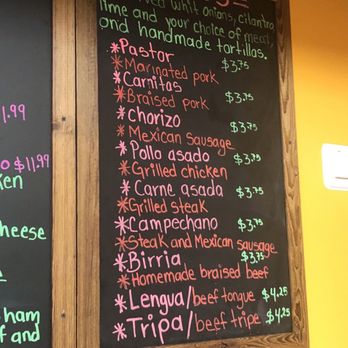 whit onions, cilantro
lime and your choice of meat,
and handmade tortillas.
*Pastor $3.75
*Marinated pork
*Carnitas
*Braised pork $3.75
*Chorizo
*Mexican sausage $3.75
*Pollo asado $3.75
*Grilled chicken
*Carne asada $3.75
*Grilled steak
*Campechano $3.75
*Steak and Mexican sausage
*Birria $3.75
*Homemade braised beef
*Lengua/beef tongue $4.25
*Tripa/beef tripe $4.25
1.99
$11.99
cheese
ham
and